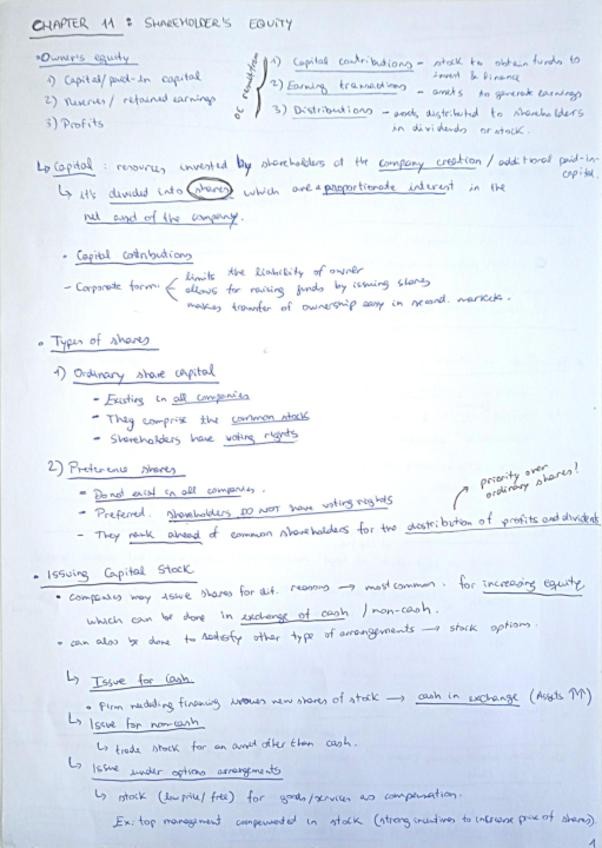 CHAPTER 11 : SHAREHOLDER'S EQUITY
• Owner's equity
1) Capital/paid-in capital
2) Reserves / retained earnings
3) Profits
OE result from
1) Capital contributions - stock to obtain funds to
invest & finance
2) Earning transactions - assets to generate earnings
3) Distributions - assets distributed to shareholders
in dividends or stock.
↳ Capital : resources invested by shareholders at the company creation / additional paid-in-
capital.
↳ it's divided into shares which are a proportionate interest in the
net and of the company.
• Capital contributions
- Corporate form:
limits the liability of owner
allows for raising funds by issuing shares
makes transfer of ownership easy in second. markets.
• Types of shares
1) Ordinary share capital
- Existing in all companies
- They comprise the common stock
- Shareholders have voting rights
2) Preference shares
- Do not exist in all companies.
- Preferred. shareholders DO NOT have voting rights
priority over
ordinary shares!
- They rank ahead of common shareholders for the distribution of profits and dividents
• Issuing Capital Stock
• companies may issue shares for dif. reasons → most common. for increasing equity
which can be done in exchange of cash / non-cash.
• can also be done to satisfy other type of arrangements → stock options.
↳ Issue for cash
• Firm needing financing issues new shares of stock → cash in exchange (Assets ↑↑)
↳ Issue for non-cash
↳ trade stock for an asset other than cash.
↳ Issue under options arrangements
↳ stock (low price/ free) for goods/services as compensation.
Ex: top management compensated in stock (strong incentives to increase price of shares).
1